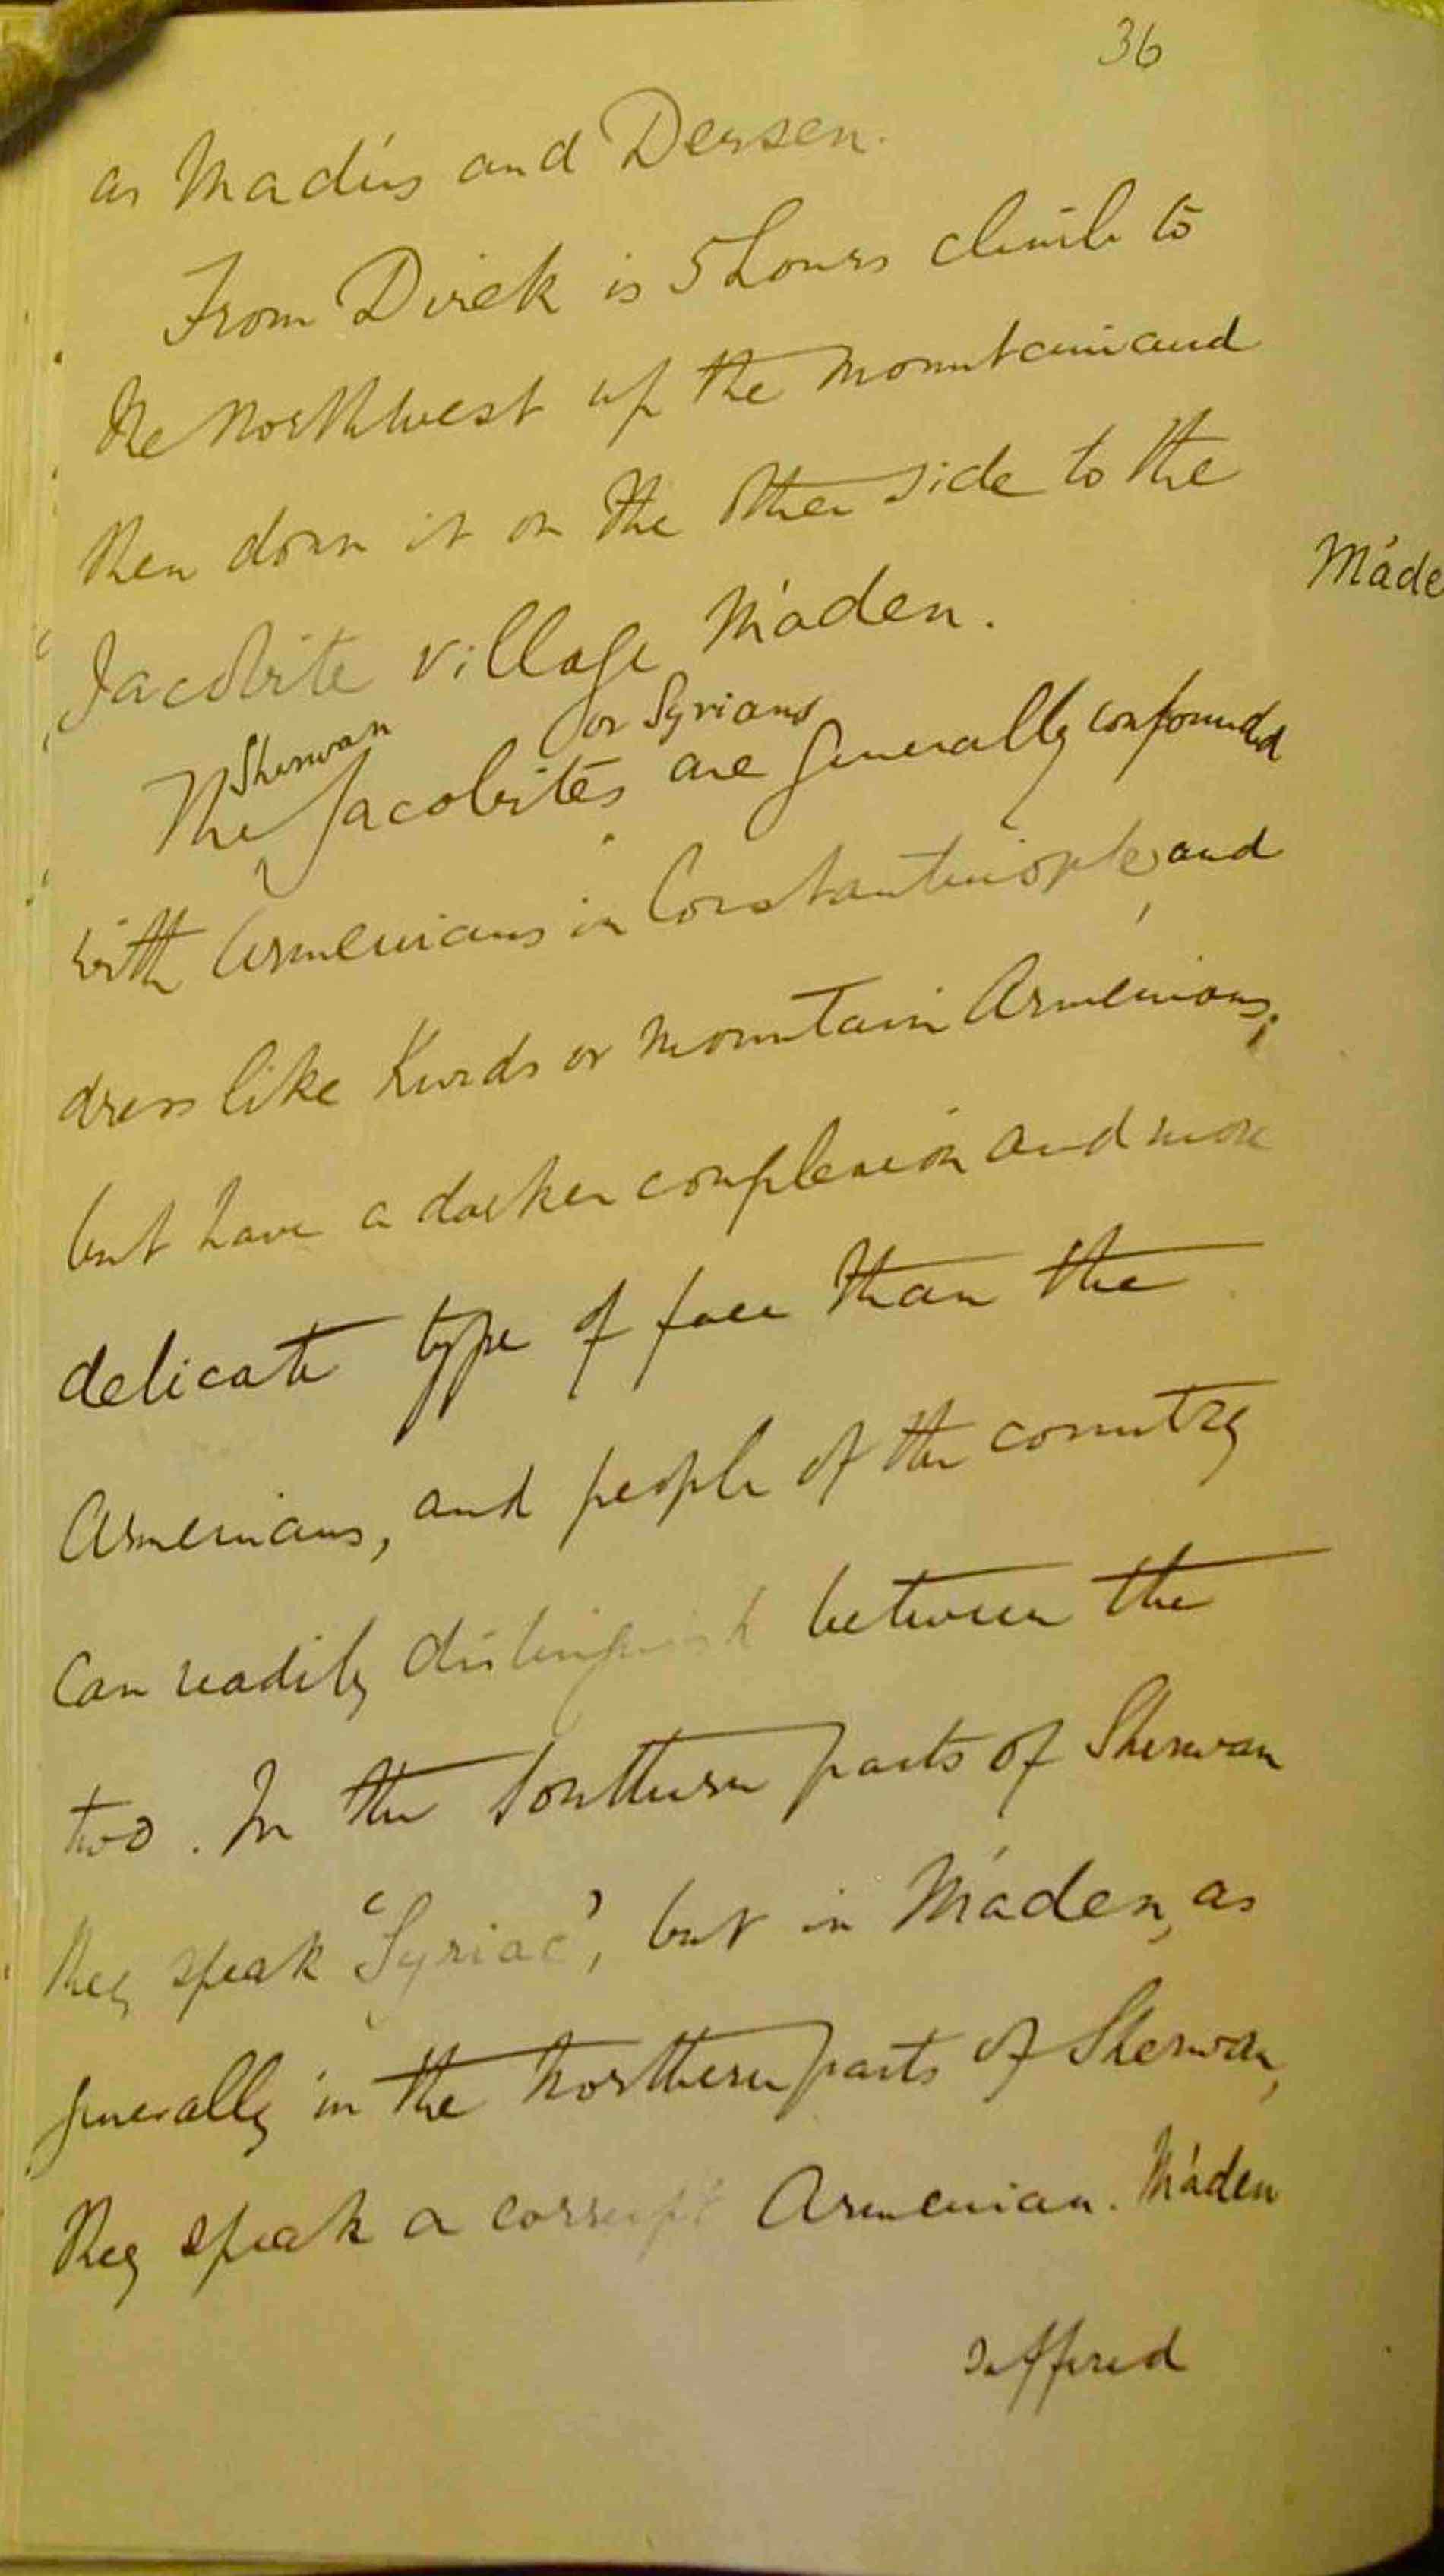 36
as Madis and Dersen.
From Direk is 5 hours climb to
the Northwest up the mountain and
then down it on the other side to the
Máde
Jacobite village Máden.
Sherwan or Syrians
The Jacobites are generally confounded
with Armenians in Constantinople, and
dress like Kurds or mountain Armenians;
but have a darker complexion and more
delicate type of face than the
Armenians, and people of the country
can readily distinguish between the
two. In the Southern parts of Sherwan
they speak 'Syriac', but in Máden, as
generally in the Northern parts of Sherwan,
they speak a corrupt Armenian. Máden
suffered